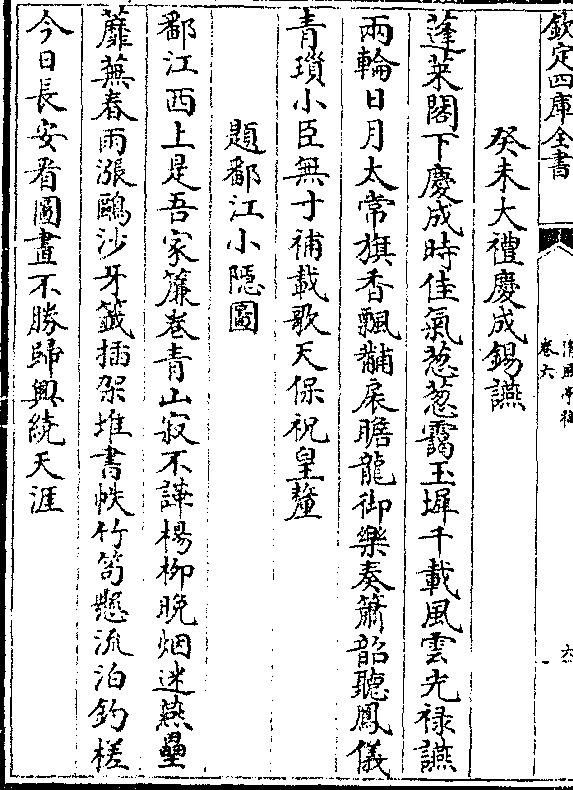 欽定四庫全書
卷六
六
癸未大禮慶成錫讌
蓬萊閣下慶成時佳氣葱葱靄玉墀千載風雲光祿讌
兩輪日月太常旗香飄黼扆瞻龍御樂奏簫韶聽鳳儀
青瑣小臣無寸補載歌天保祝皇釐
題鄱江小隱圖
鄱江西上是吾家簾卷青山寂不譁楊柳晚烟迷燕壘
蘼蕪春雨漲鷗沙牙籤插架堆書帙竹笥懸流泊釣槎
今日長安看圖畫不勝歸興繞天涯